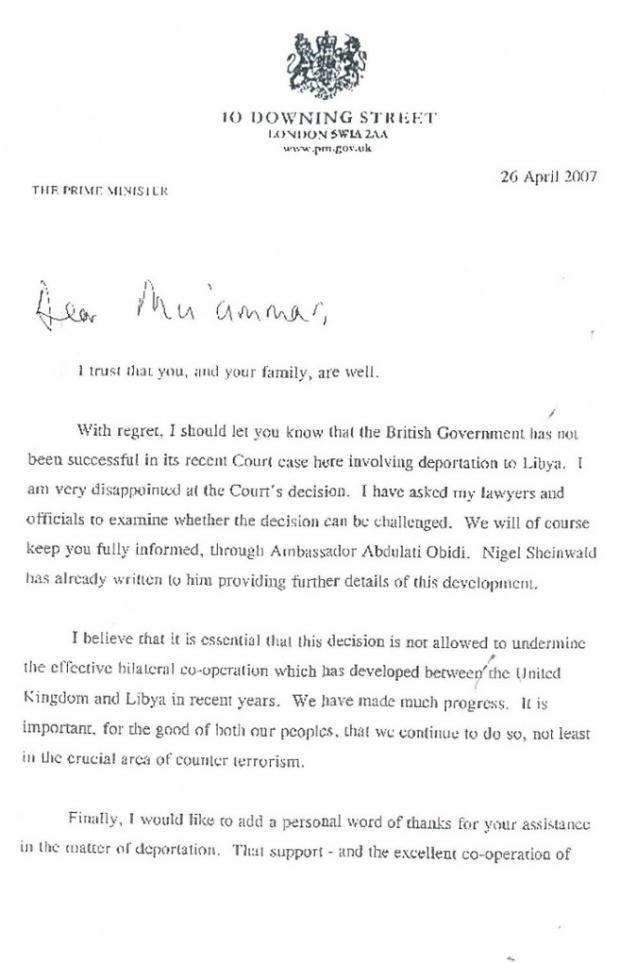 10 DOWNING STREET
LONDON SW1A 2AA
www.pm.gov.uk
26 April 2007
THE PRIME MINISTER
Dear Mu'ammar,
I trust that you, and your family, are well.
With regret, I should let you know that the British Government has not
been successful in its recent Court case here involving deportation to Libya. I
am very disappointed at the Court's decision. I have asked my lawyers and
officials to examine whether the decision can be challenged. We will of course
keep you fully informed, through Ambassador Abdulati Obidi. Nigel Sheinwald
has already written to him providing further details of this development.
I believe that it is essential that this decision is not allowed to undermine
the effective bilateral co-operation which has developed between the United
Kingdom and Libya in recent years. We have made much progress. It is
important, for the good of both our peoples, that we continue to do so, not least
in the crucial area of counter terrorism.
Finally, I would like to add a personal word of thanks for your assistance
in the matter of deportation. That support - and the excellent co-operation of